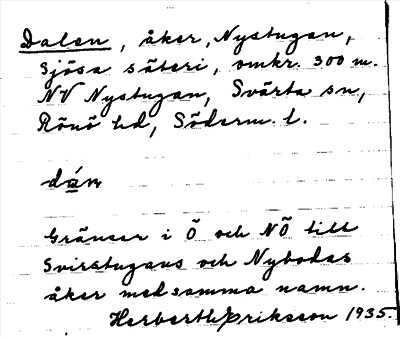 Dalen, åker, Nystugan,
Sjösa säteri, omkr. 300 m.
NV Nystugan, Svärta sn,
Rönö hd, Söderm. l.
dán
Gränsar i Ö och NÖ till
Svirstugans och Nybodas
åker med samma namn.
Herberth Eriksson 1935.